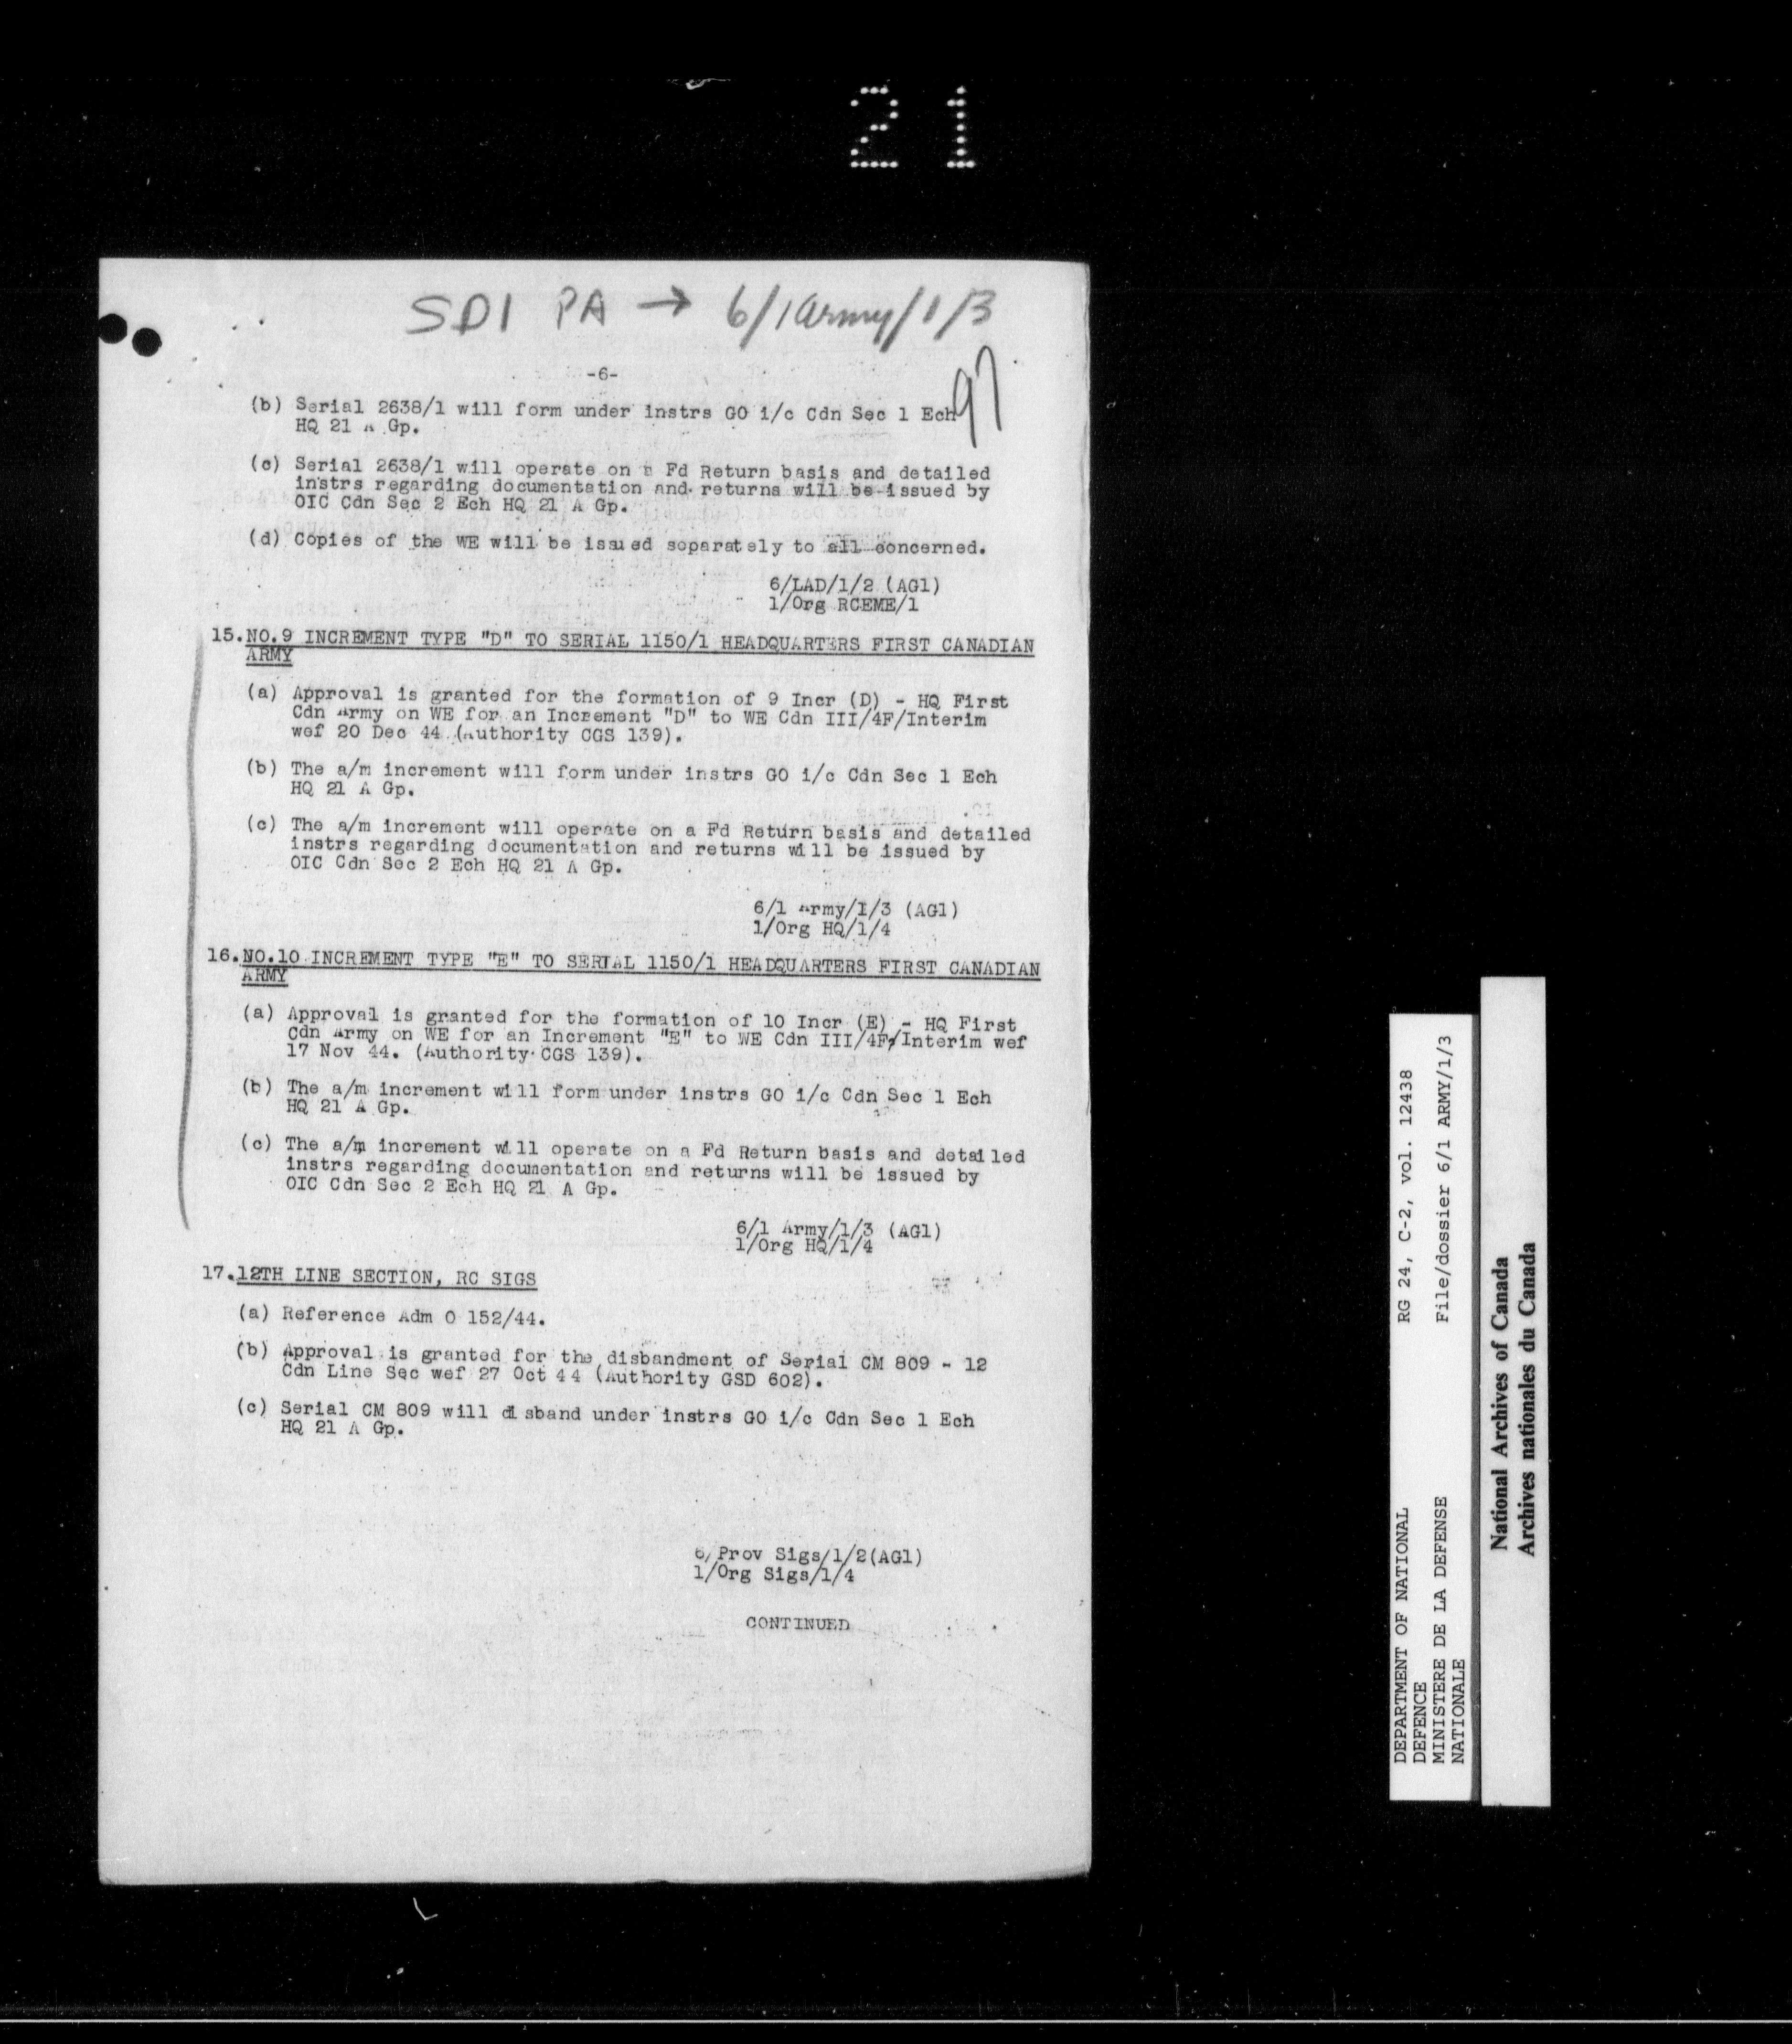 21
SD1 PA → 6/1 Army/1/3
97
-6-
(b) Serial 2638/1 will form under instrs GO i/c Cdn Sec 1 Ech
HQ 21 A Gp.
(c) Serial 2638/1 will operate on a Fd Return basis and detailed
instrs regarding documentation and returns will be issued by
OIC Cdn Sec 2 Ech HQ 21 A Gp.
(d) Copies of the WE will be issued separately to all concerned.
6/LAD/1/2 (AG1)
1/Org RCEME/1
15. NO.9 INCREMENT TYPE "D" TO SERIAL 1150/1 HEADQUARTERS FIRST CANADIAN
ARMY
(a) Approval is granted for the formation of 9 Incr (D) - HQ First
Cdn Army on WE for an Increment "D" to WE Cdn III/4F/Interim
wef 20 Dec 44 (Authority CGS 139).
(b) The a/m increment will form under instrs GO i/c Cdn Sec 1 Ech
HQ 21 A Gp.
(c) The a/m increment will operate on a Fd Return basis and detailed
instrs regarding documentation and returns will be issued by
OIC Cdn Sec 2 Ech HQ 21 A Gp.
6/1 Army/1/3 (AG1)
1/Org HQ/1/4
16. NO.10 INCREMENT TYPE "E" TO SERIAL 1150/1 HEADQUARTERS FIRST CANADIAN
ARMY
(a) Approval is granted for the formation of 10 Incr (E) - HQ First
Cdn Army on WE for an Increment "E" to WE Cdn III/4F/Interim wef
17 Nov 44. (Authority CGS 139).
(b) The a/m increment will form under instrs GO i/c Cdn Sec 1 Ech
HQ 21 A Gp.
(c) The a/m increment will operate on a Fd Return basis and detailed
instrs regarding documentation and returns will be issued by
OIC Cdn Sec 2 Ech HQ 21 A Gp.
6/1 Army/1/3 (AG1)
1/Org HQ/1/4
17. 12TH LINE SECTION, RC SIGS
(a) Reference Adm O 152/44.
(b) Approval is granted for the disbandment of Serial CM 809 - 12
Cdn Line Sec wef 27 Oct 44 (Authority GSD 602).
(c) Serial CM 809 will disband under instrs GO i/c Cdn Sec 1 Ech
HQ 21 A Gp.
6/Prov Sigs/1/2(AG1)
1/Org Sigs/1/4
CONTINUED
DEPARTMENT OF NATIONAL
DEFENCE
MINISTERE DE LA DEFENSE
NATIONALE
RG 24, C-2, vol. 12438
File/dossier 6/1 ARMY/1/3
National Archives of Canada
Archives nationales du Canada